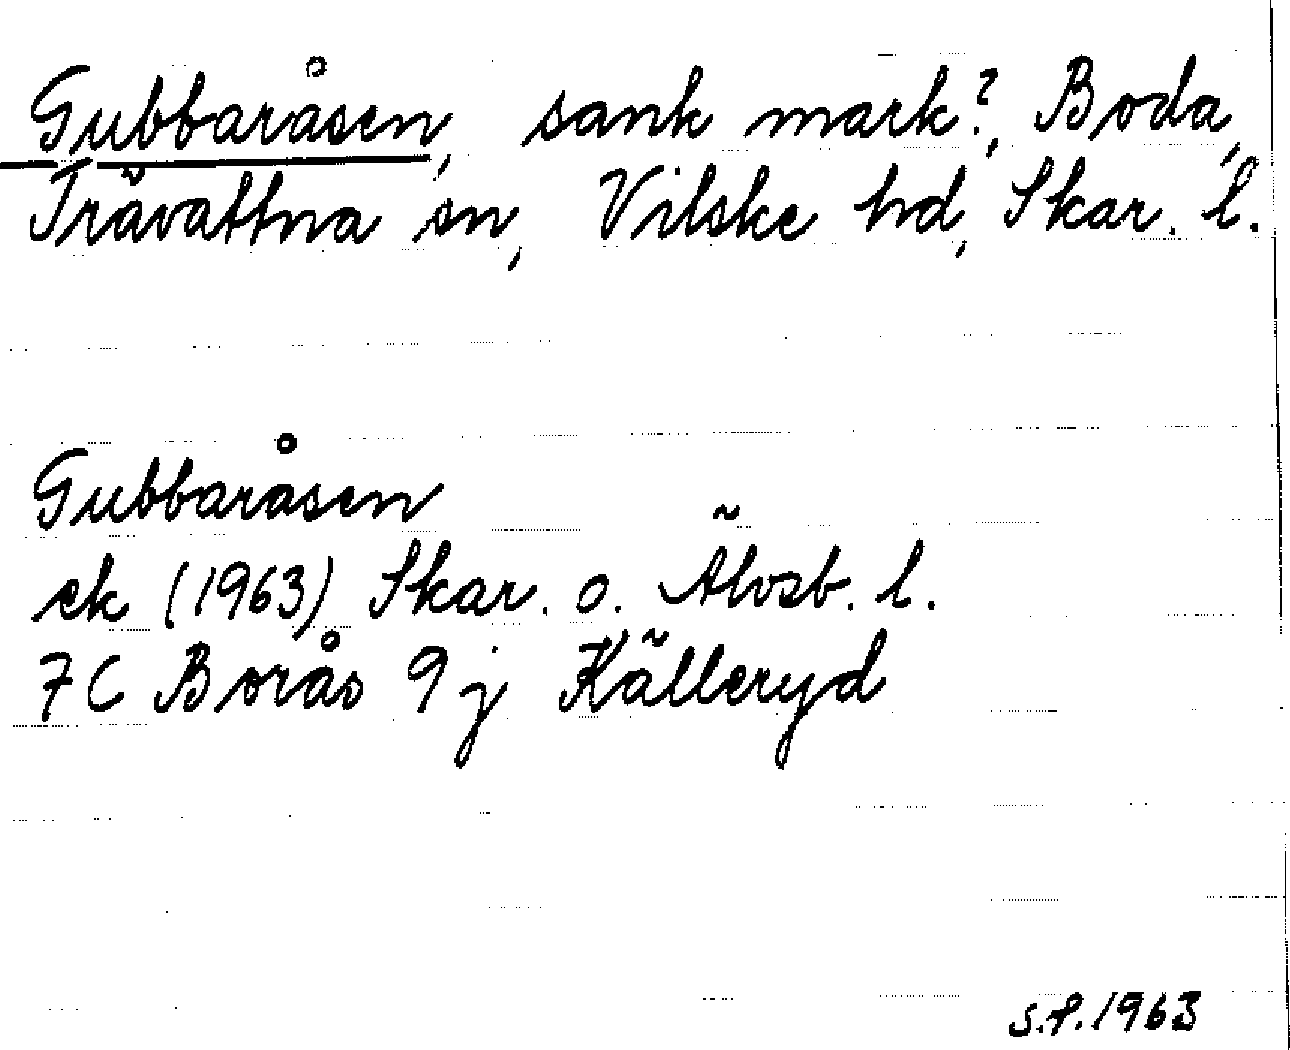 Gubbaråsen, sank mark?, Boda,
Trävattna sn, Vilske hd, Skar. l.
Gubbaråsen
ek (1963) Skar. o. Älvsb. l.
7C Borås 9j Källeryd
S.P. 1963